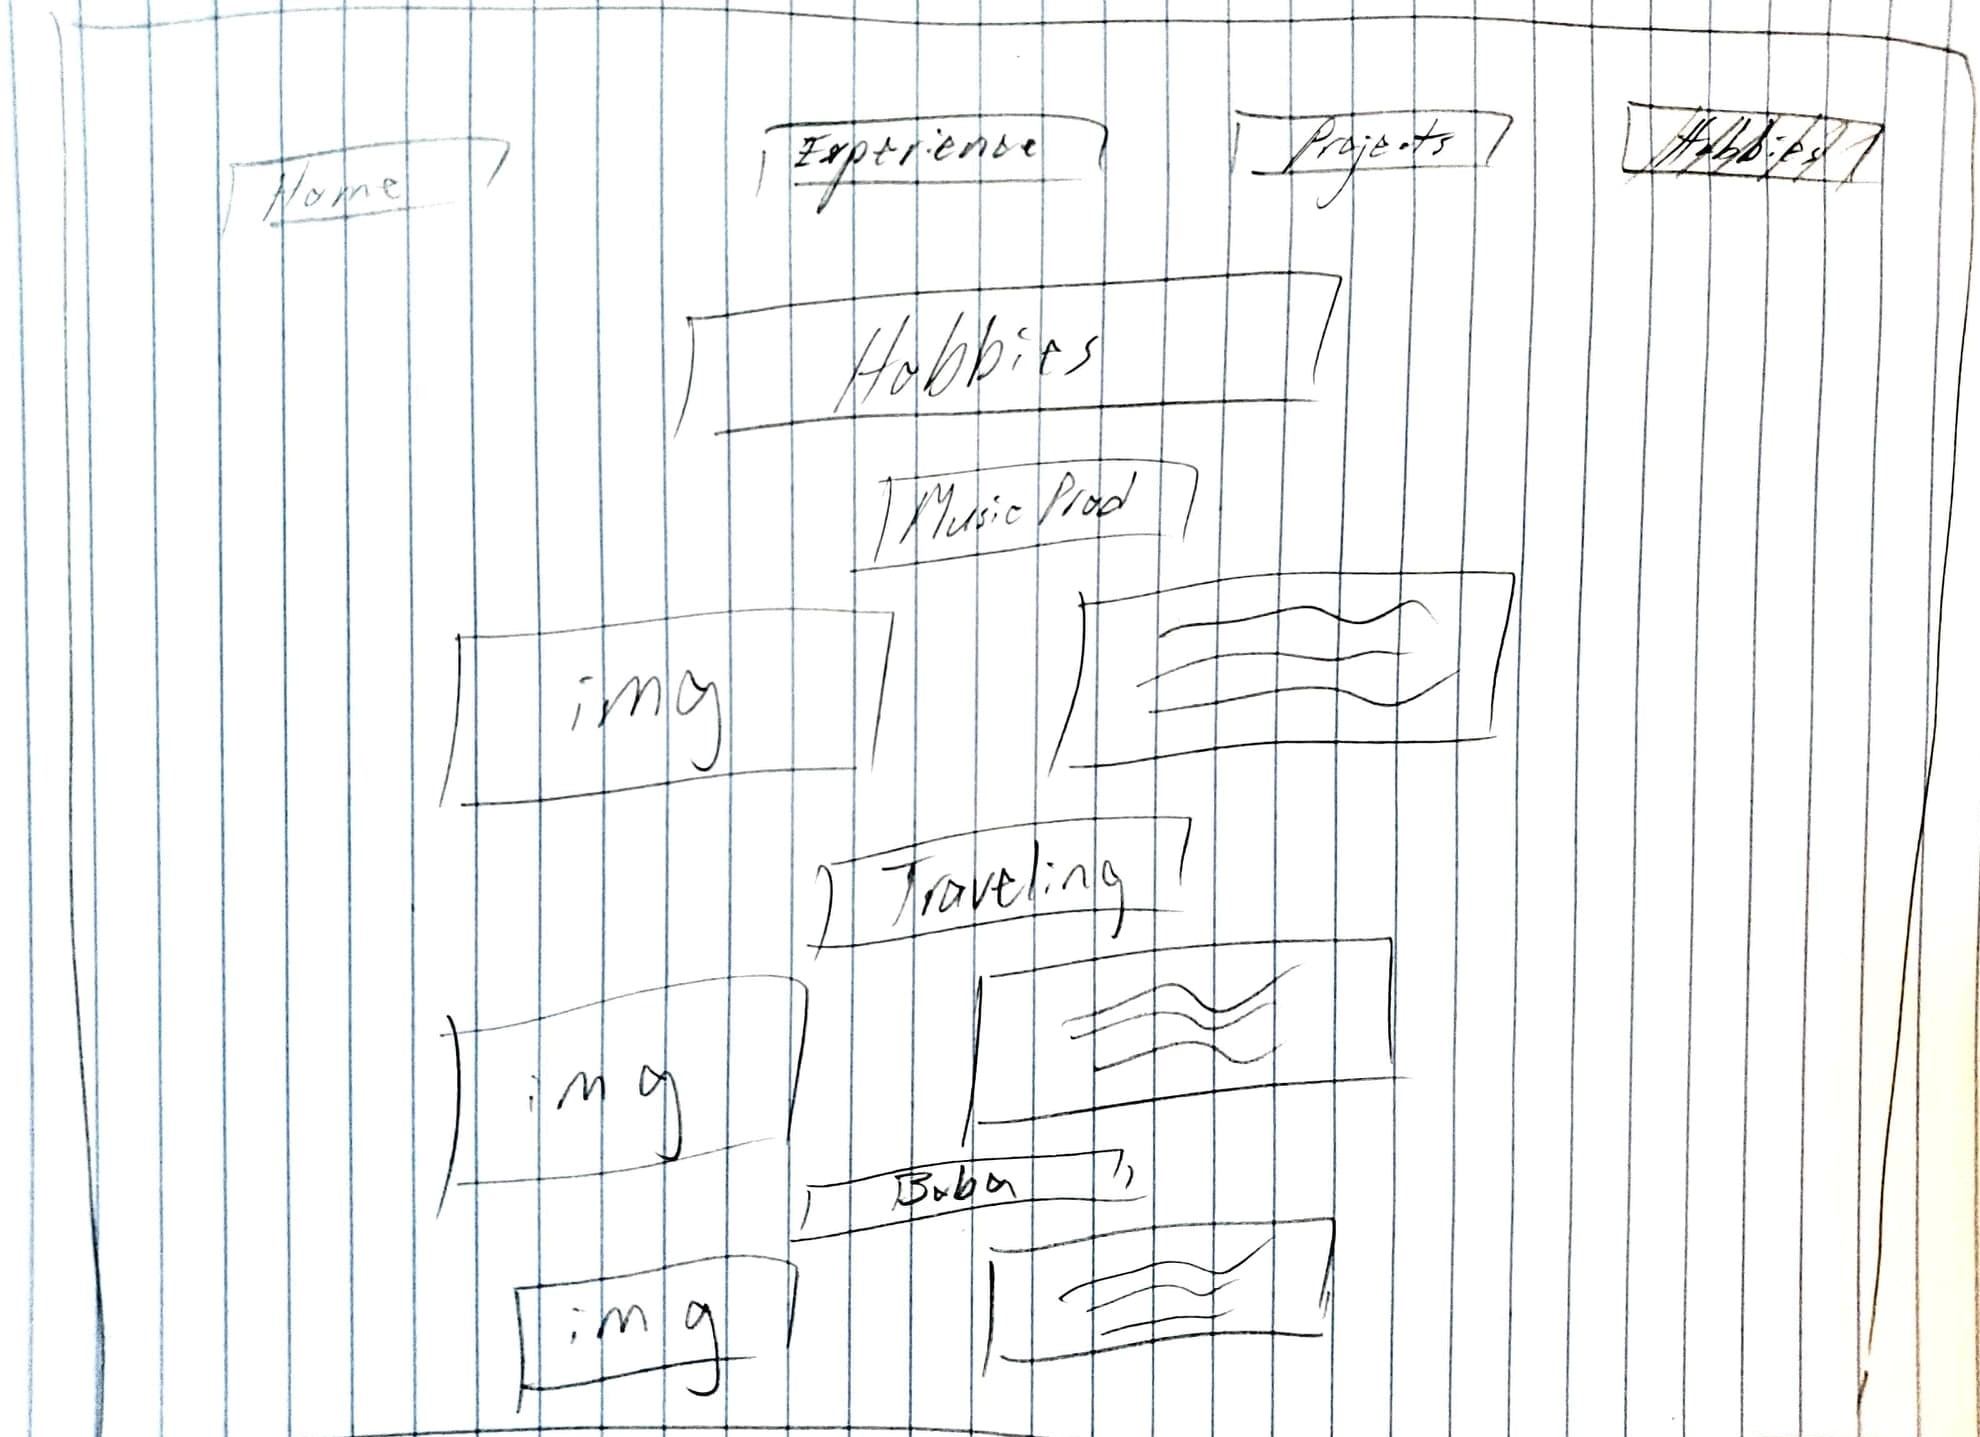 Home Experience Projects Hobbies
Hobbies
Music Prod
img
Traveling
img
Boba
img